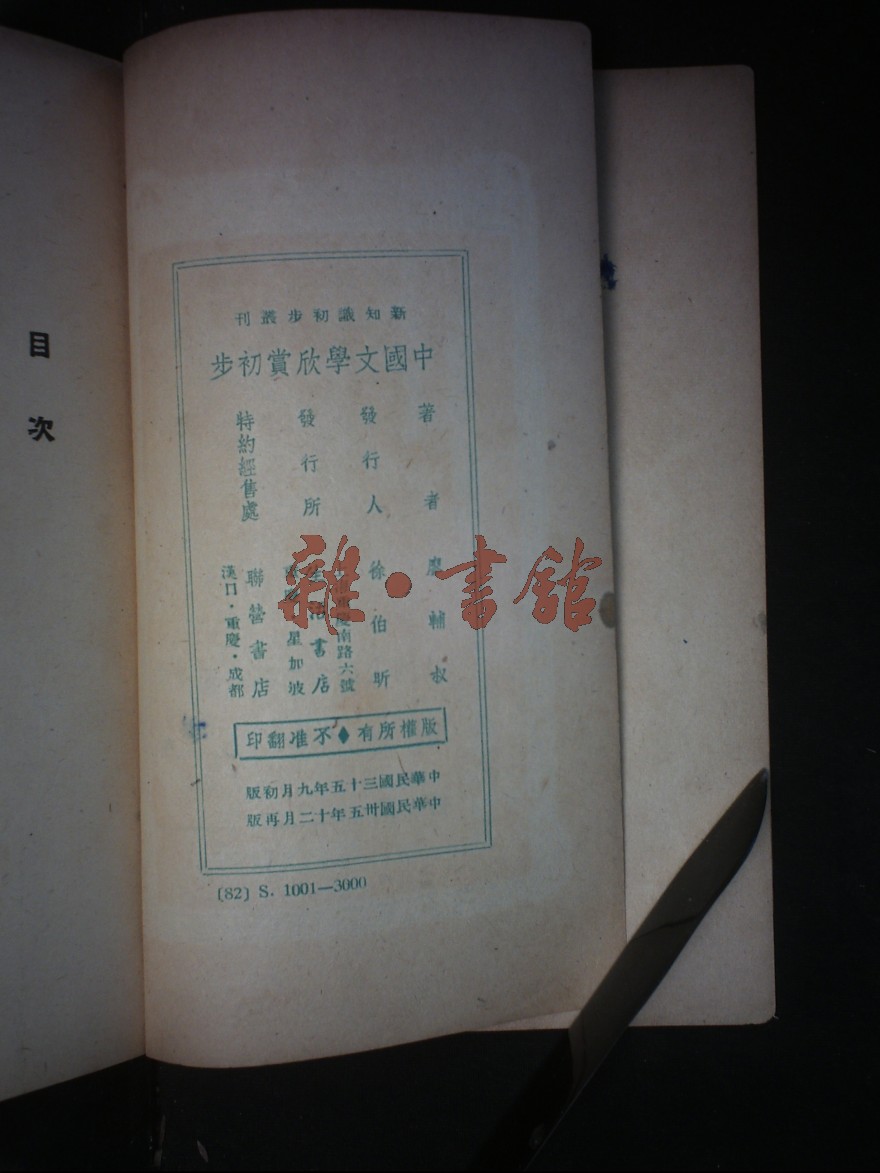 新知識初步叢刊
中國文學欣賞初步
著者 糜輔叔
發行人 徐伯昕
發行所 書店
南路六號
星加坡
特約經售處 聯營書店
漢口·重慶·成都
版權所有◆不准翻印
中華民國三十五年九月初版
中華民國卅五年十二月再版
(82) S. 1001—3000
目次
雜·書館